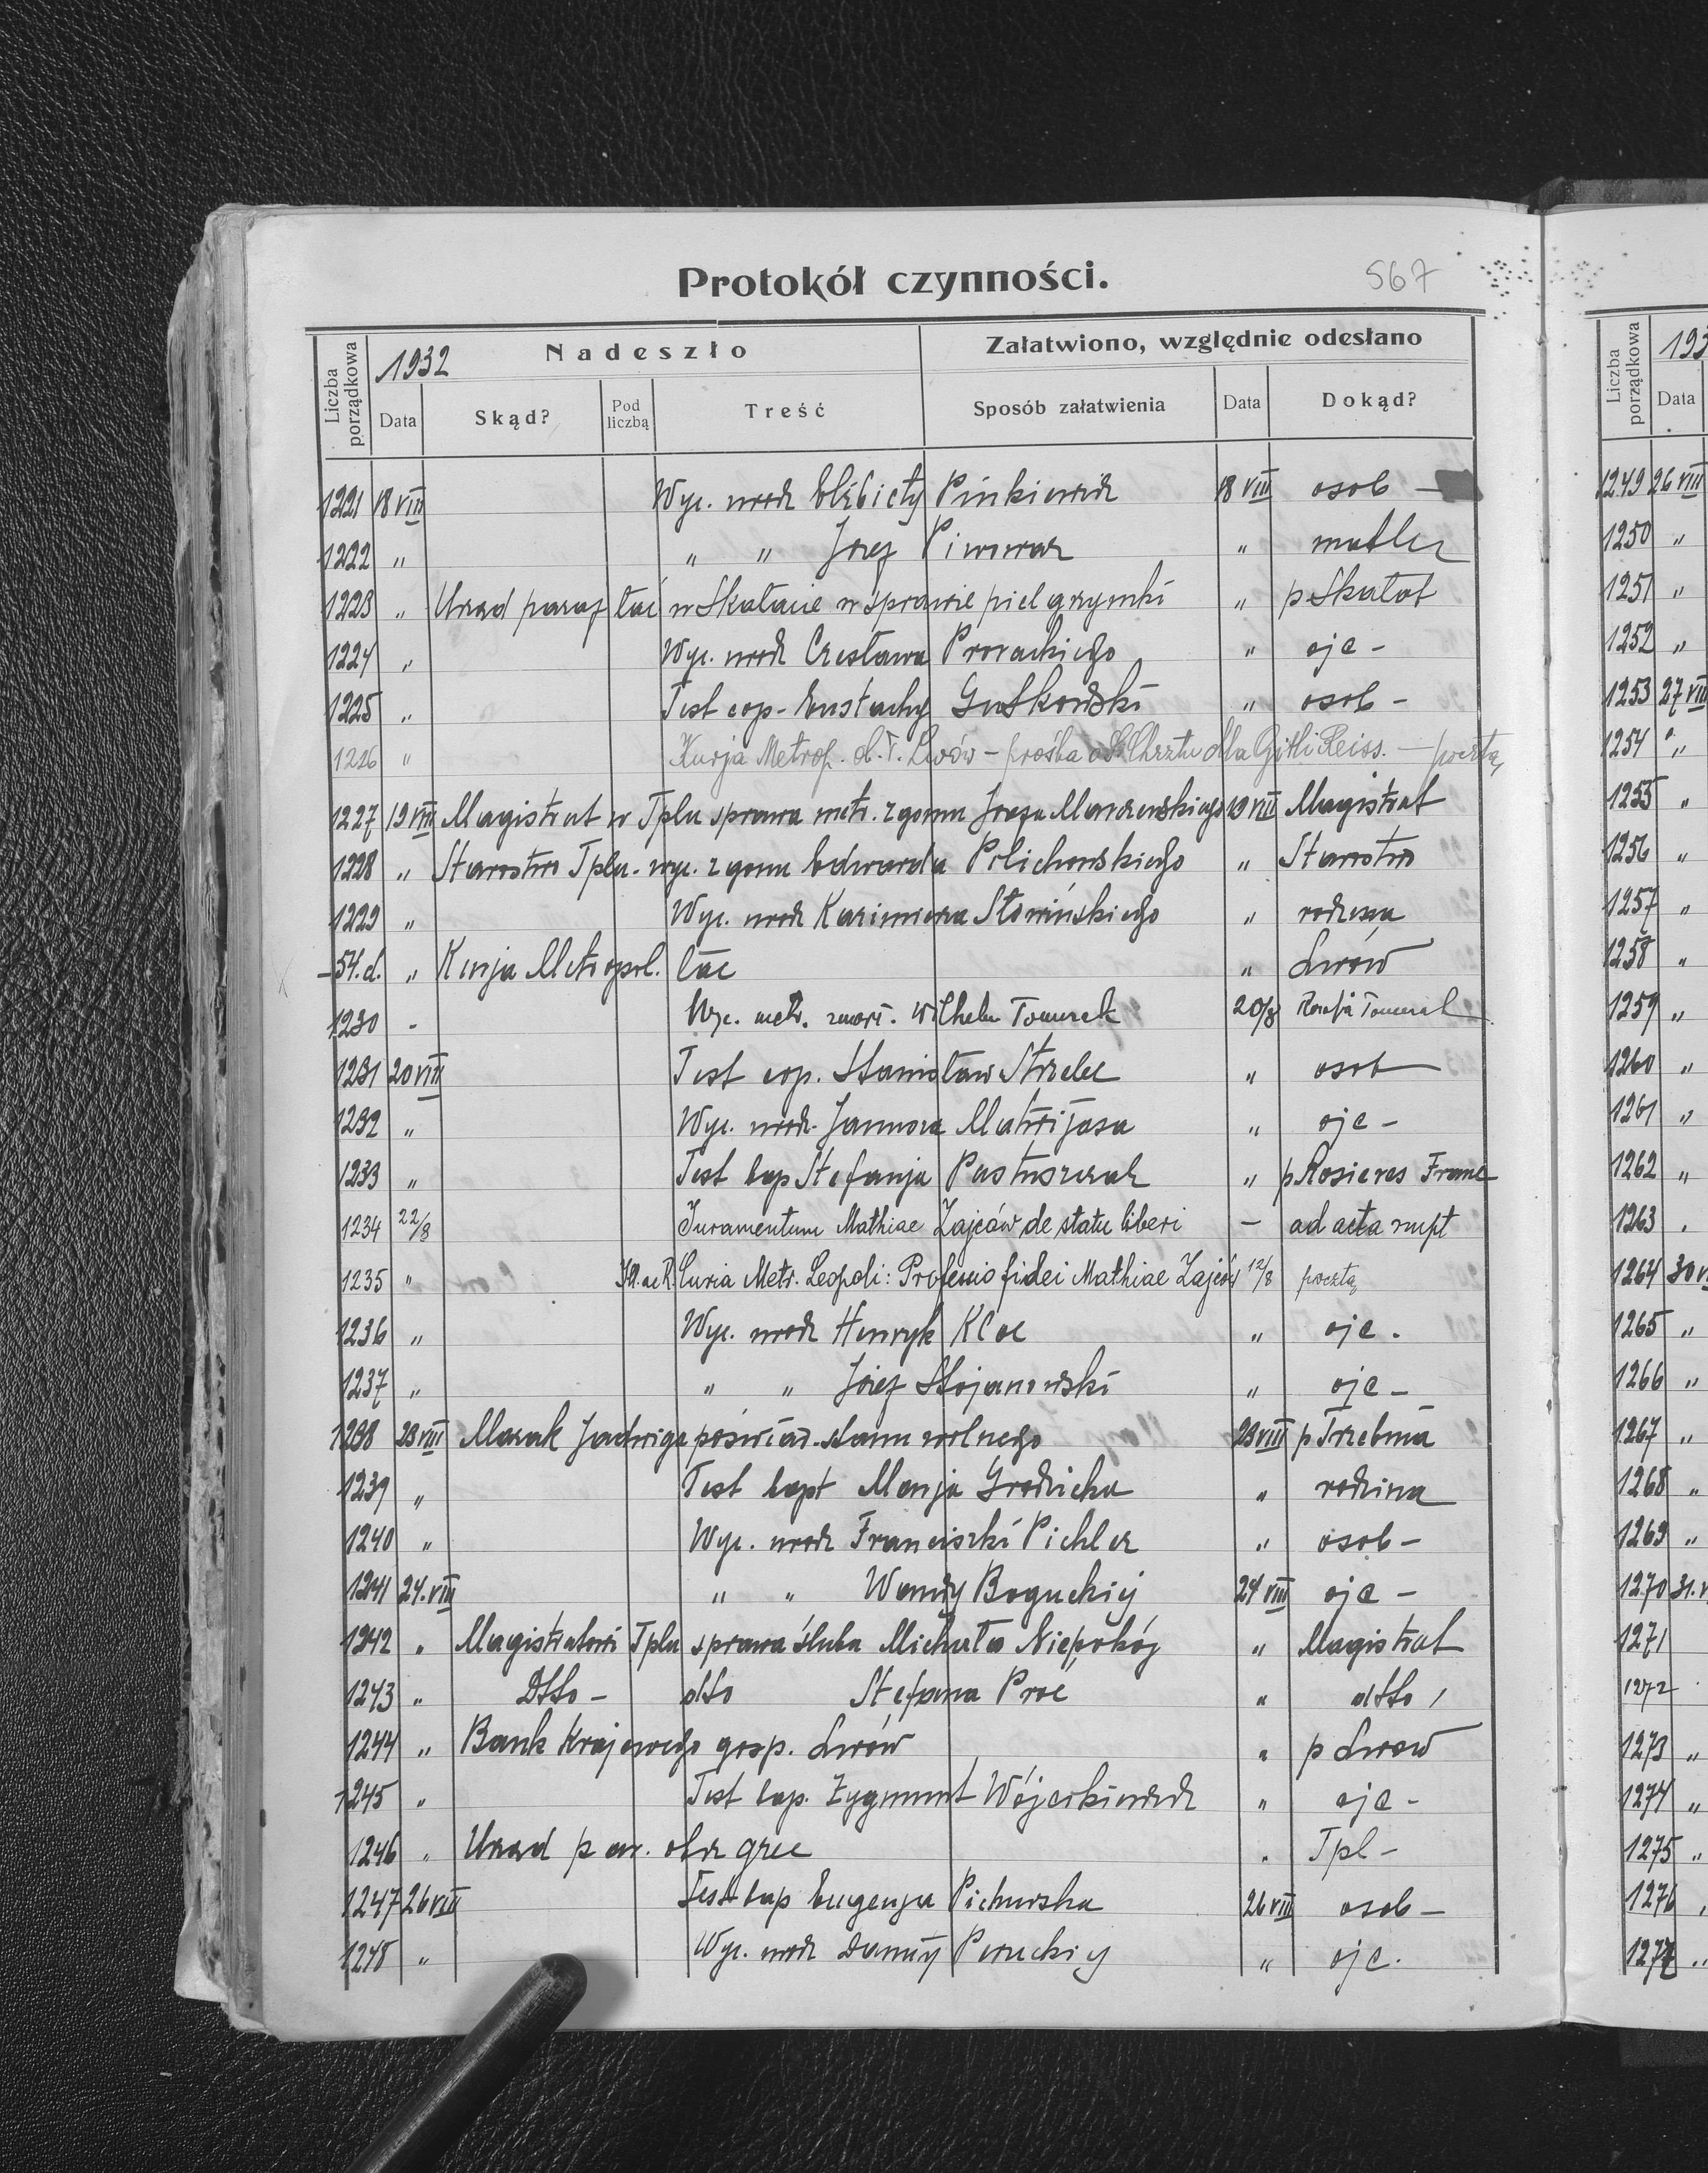 Protokół czynności.
567
Liczba porządkowa
1932
Nadeszło
Załatwiono, względnie odesłano
Data
Skąd?
Pod liczbą
Treść
Sposób załatwienia
Data
Dokąd?
1221 18 VIII Wyc. urodz Elżbiety Pinkiewicz 18 VIII osob -
1222 " " " Józef Piwowar "
1223 " Urząd paraf łać w Skałacie w sprawie pielgrzymki " p Skałat
1224 " Wyc. urodz Czesława Prorackiego " ojc -
1225 " Test cop - Eustachy Gutkowski " osob -
1226 " Kurja Metrop. o. ł. Lwów - prośba o S. Chrztu dla Gitli Reiss. - pocztą
1227 19 VIII Magistrat w Tplu sprawa metr. zgonu Józefa Marczewskiego 19 VIII Magistrat
1228 " Starostwo Tplu - wyc. zgonu Edwarda Polichowskiego " Starostwo
1229 " Wyc. urodz Kazimierza Słowińskiego " rodzina
-54.d. " Kurja Metropol. łac " Lwów
1230 - Wyc. metr. Wilhelm Tomczak 20/8 Tomczak
1231 20 VIII Test cop. Stanisław Strzelec " osob
1232 " Wyc. urodz - Matwijasa " ojc -
1233 " Test bap Stefanja Pastuszczak " p Rosieres Franc
1234 22/8 Juramentum Mathiae Zajców de statu liberi - ad acta nupt
1235 " Curia Metr. Leopoli: Professio fidei Mathiae Zajców 12/8 pocztą
1236 " Wyc. urodz Henryk Kloc " ojc.
1237 " " " Józef Stojanowski " ojc -
1238 23 VIII Mazak Jadwiga poświad. stanu wolnego 23 VIII p Trzebinia
1239 " Test bapt Marja Grodzicka " rodzina
1240 " Wyc. urodz Franciszki Pichler " osob -
1241 24. VIII " " Wandy Boguckiej 24 VIII ojc -
1242 " Magistratowi Tplu sprawa ślubu Michała Niepokój " Magistrat
1243 " Dtto - dtto Stefana Proć " dtto
1244 " Bank Krajowego gosp. Lwów " p Lwow
1245 " Test bap. Zygmunt Wójcikiewicz " ojc -
1246 " Urząd par. obrz grec " Tpl -
1247 26 VIII Test bap Eugenja Pichurska 26 VIII osob -
1248 " Wyc. urodz Danuty Peruckiej " ojc.
Liczba porządkowa
193
Data
1249 26 VIII
1250 "
1251 "
1252 "
1253 27 VIII
1254 "
1255 "
1256 "
1257 "
1258 "
1259 "
1260 "
1261 "
1262 "
1263
1264 30 VI
1265 "
1266 "
1267 "
1268 "
1269 "
1270 31. V
1271
1272
1273 "
1274 "
1275 "
1276
1277 "